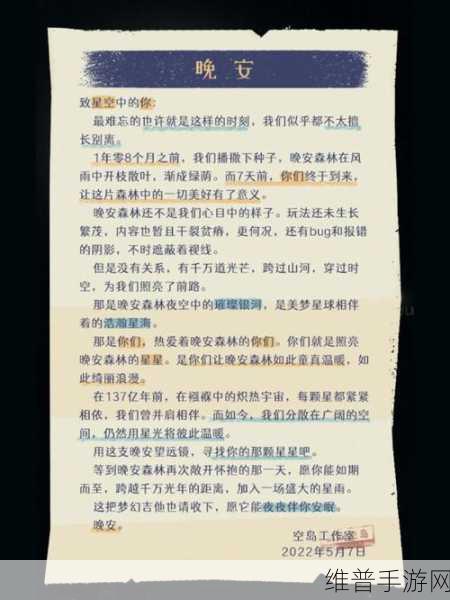 晚安
致星空中的你:
最难忘的也许就是这样的时刻，我们似乎都不太擅
长别离。
1年零8个月之前，我们播撒下种子，晚安森林在风
雨中开枝散叶，渐成绿荫。而7天前，你们终于到来，
让这片森林中的一切美好有了意义。
晚安森林还不是我们心目中的样子。玩法还未生长
繁茂，内容也暂且干裂贫瘠，更何况，还有bug和报错
的阴影，不时遮蔽着视线。
但是没有关系，有千万道光芒，跨过山河，穿过时
空，为我们照亮了前路。
那是晚安森林夜空中的璀璨银河，是美梦星球相伴
着的浩瀚星海。
那是你们，热爱着晚安森林的你们。你们就是照亮
晚安森林的星星。是你们让晚安森林如此童真温暖，如
此绮丽浪漫。
在137亿年前，在襁褓中的炽热宇宙，每颗星都紧紧
相依，我们曾并肩相伴。而如今，我们分散在广阔的空
间，仍然用星光将彼此温暖。
用这支晚安望远镜，寻找你的那颗星星吧。
等到晚安森林再次敞开怀抱的那一天，愿你能如期
而至，跨越千万光年的距离，加入一场盛大的星雨。
这把梦幻吉他也请收下，愿它能夜夜伴你安眠。
晚安。
空岛工作室
2022年5月7日
维普手游网